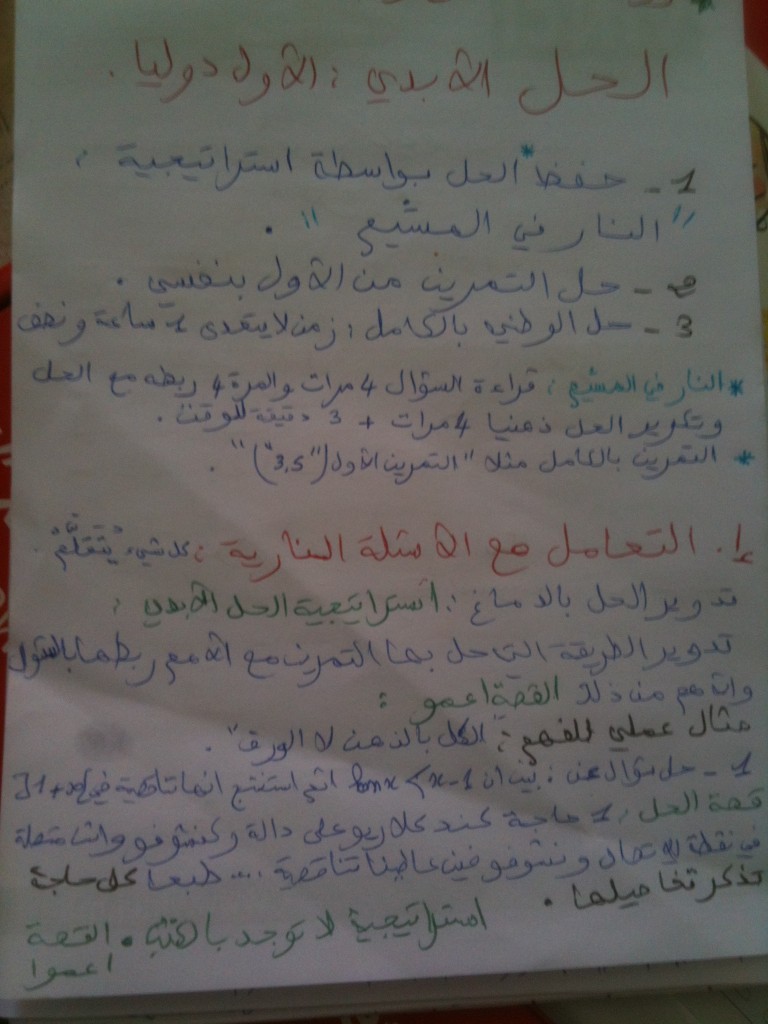 الحل الأبدي : الأول دوليا .
1 - حفظ* الحل بواسطة استراتيجية :
"النار في المشيع" .
2 - حل التمرين من الأول بنفسي .
3 - حل الوطني بالكامل : زمن لا يتعدى 1 ساعة ونصف
* النار في المشيع : قراءة السؤال 4 مرات والمرة 4 ربطه مع الحل
وتكرير الحل ذهنيا 4 مرات + 3 دقيقة للوقت .
* التمرين بالكامل مثلا "التمرين الأول ("3,5")" .
I. التعامل مع الأسئلة النارية : كلشيء يُتَعَلَّمُ .
تدوير الحل بالدماغ : استراتيجية الحل الأبدي :
تدوير الطريقة التي حل بها التمرين مع الأم مع ربطها بالسؤال
من ذلك القصة اعمو :
مثال عملي للفهم : "الحل بالذهن لا الورق" .
1 - حل سؤال عن : بين أن ln x < x-1 استنتج انها تناقصية في
قصة الحل : 1 حاجة كند على دالة وكنشوفو واش متصلة
في نقطة الاتصال ونشوفو فين تناقصية .... طبعا كل حاجة
تذكر تفاصيلها .
استراتيجية لا توجد بالكتب . القصة
اعموا